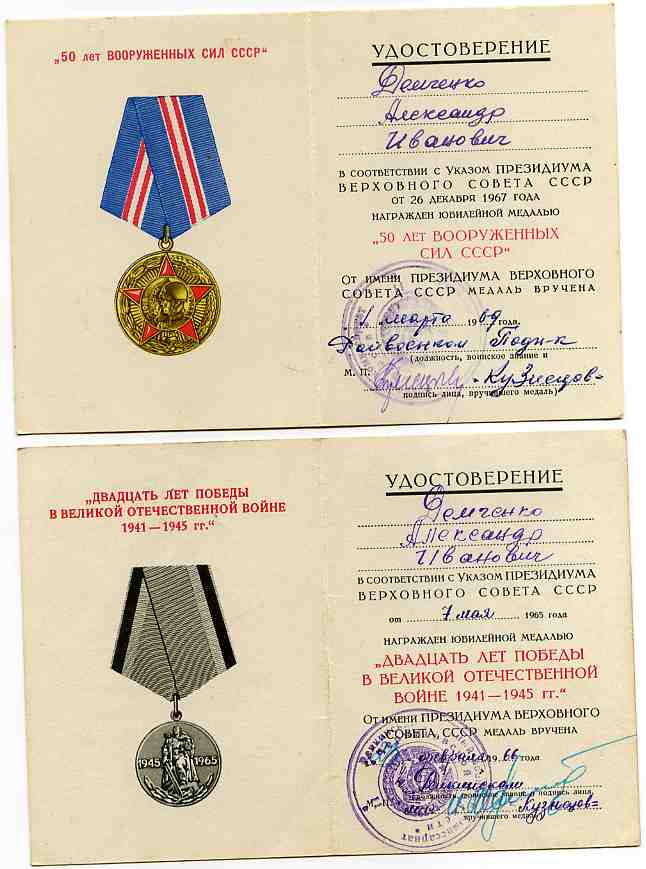 „50 лет ВООРУЖЕННЫХ СИЛ СССР“
УДОСТОВЕРЕНИЕ
Демченко
Александр
Иванович
В СООТВЕТСТВИИ С УКАЗОМ ПРЕЗИДИУМА
ВЕРХОВНОГО СОВЕТА СССР
ОТ 26 ДЕКАБРЯ 1967 ГОДА
НАГРАЖДЕН ЮБИЛЕЙНОЙ МЕДАЛЬЮ
„50 ЛЕТ ВООРУЖЕННЫХ
СИЛ СССР“
ОТ ИМЕНИ ПРЕЗИДИУМА ВЕРХОВНОГО
СОВЕТА СССР МЕДАЛЬ ВРУЧЕНА
1 марта 1969 года.
Райвоенком Подп-к
(должность, воинское звание и
М. П. Кузнецов
подпись лица, вручившего медаль)
„ДВАДЦАТЬ ЛЕТ ПОБЕДЫ
В ВЕЛИКОЙ ОТЕЧЕСТВЕННОЙ ВОЙНЕ
1941—1945 гг.“
1945 1965
УДОСТОВЕРЕНИЕ
Демченко
Александр
Иванович
В СООТВЕТСТВИИ С УКАЗОМ ПРЕЗИДИУМА
ВЕРХОВНОГО СОВЕТА СССР
от 7 мая 1965 года
НАГРАЖДЕН ЮБИЛЕЙНОЙ МЕДАЛЬЮ
„ДВАДЦАТЬ ЛЕТ ПОБЕДЫ
В ВЕЛИКОЙ ОТЕЧЕСТВЕННОЙ
ВОЙНЕ 1941—1945 гг.“
ОТ ИМЕНИ ПРЕЗИДИУМА ВЕРХОВНОГО
СОВЕТА СССР МЕДАЛЬ ВРУЧЕНА
февраля 1966 года
звание и подпись лица,
Кузнецов
вручившего медаль